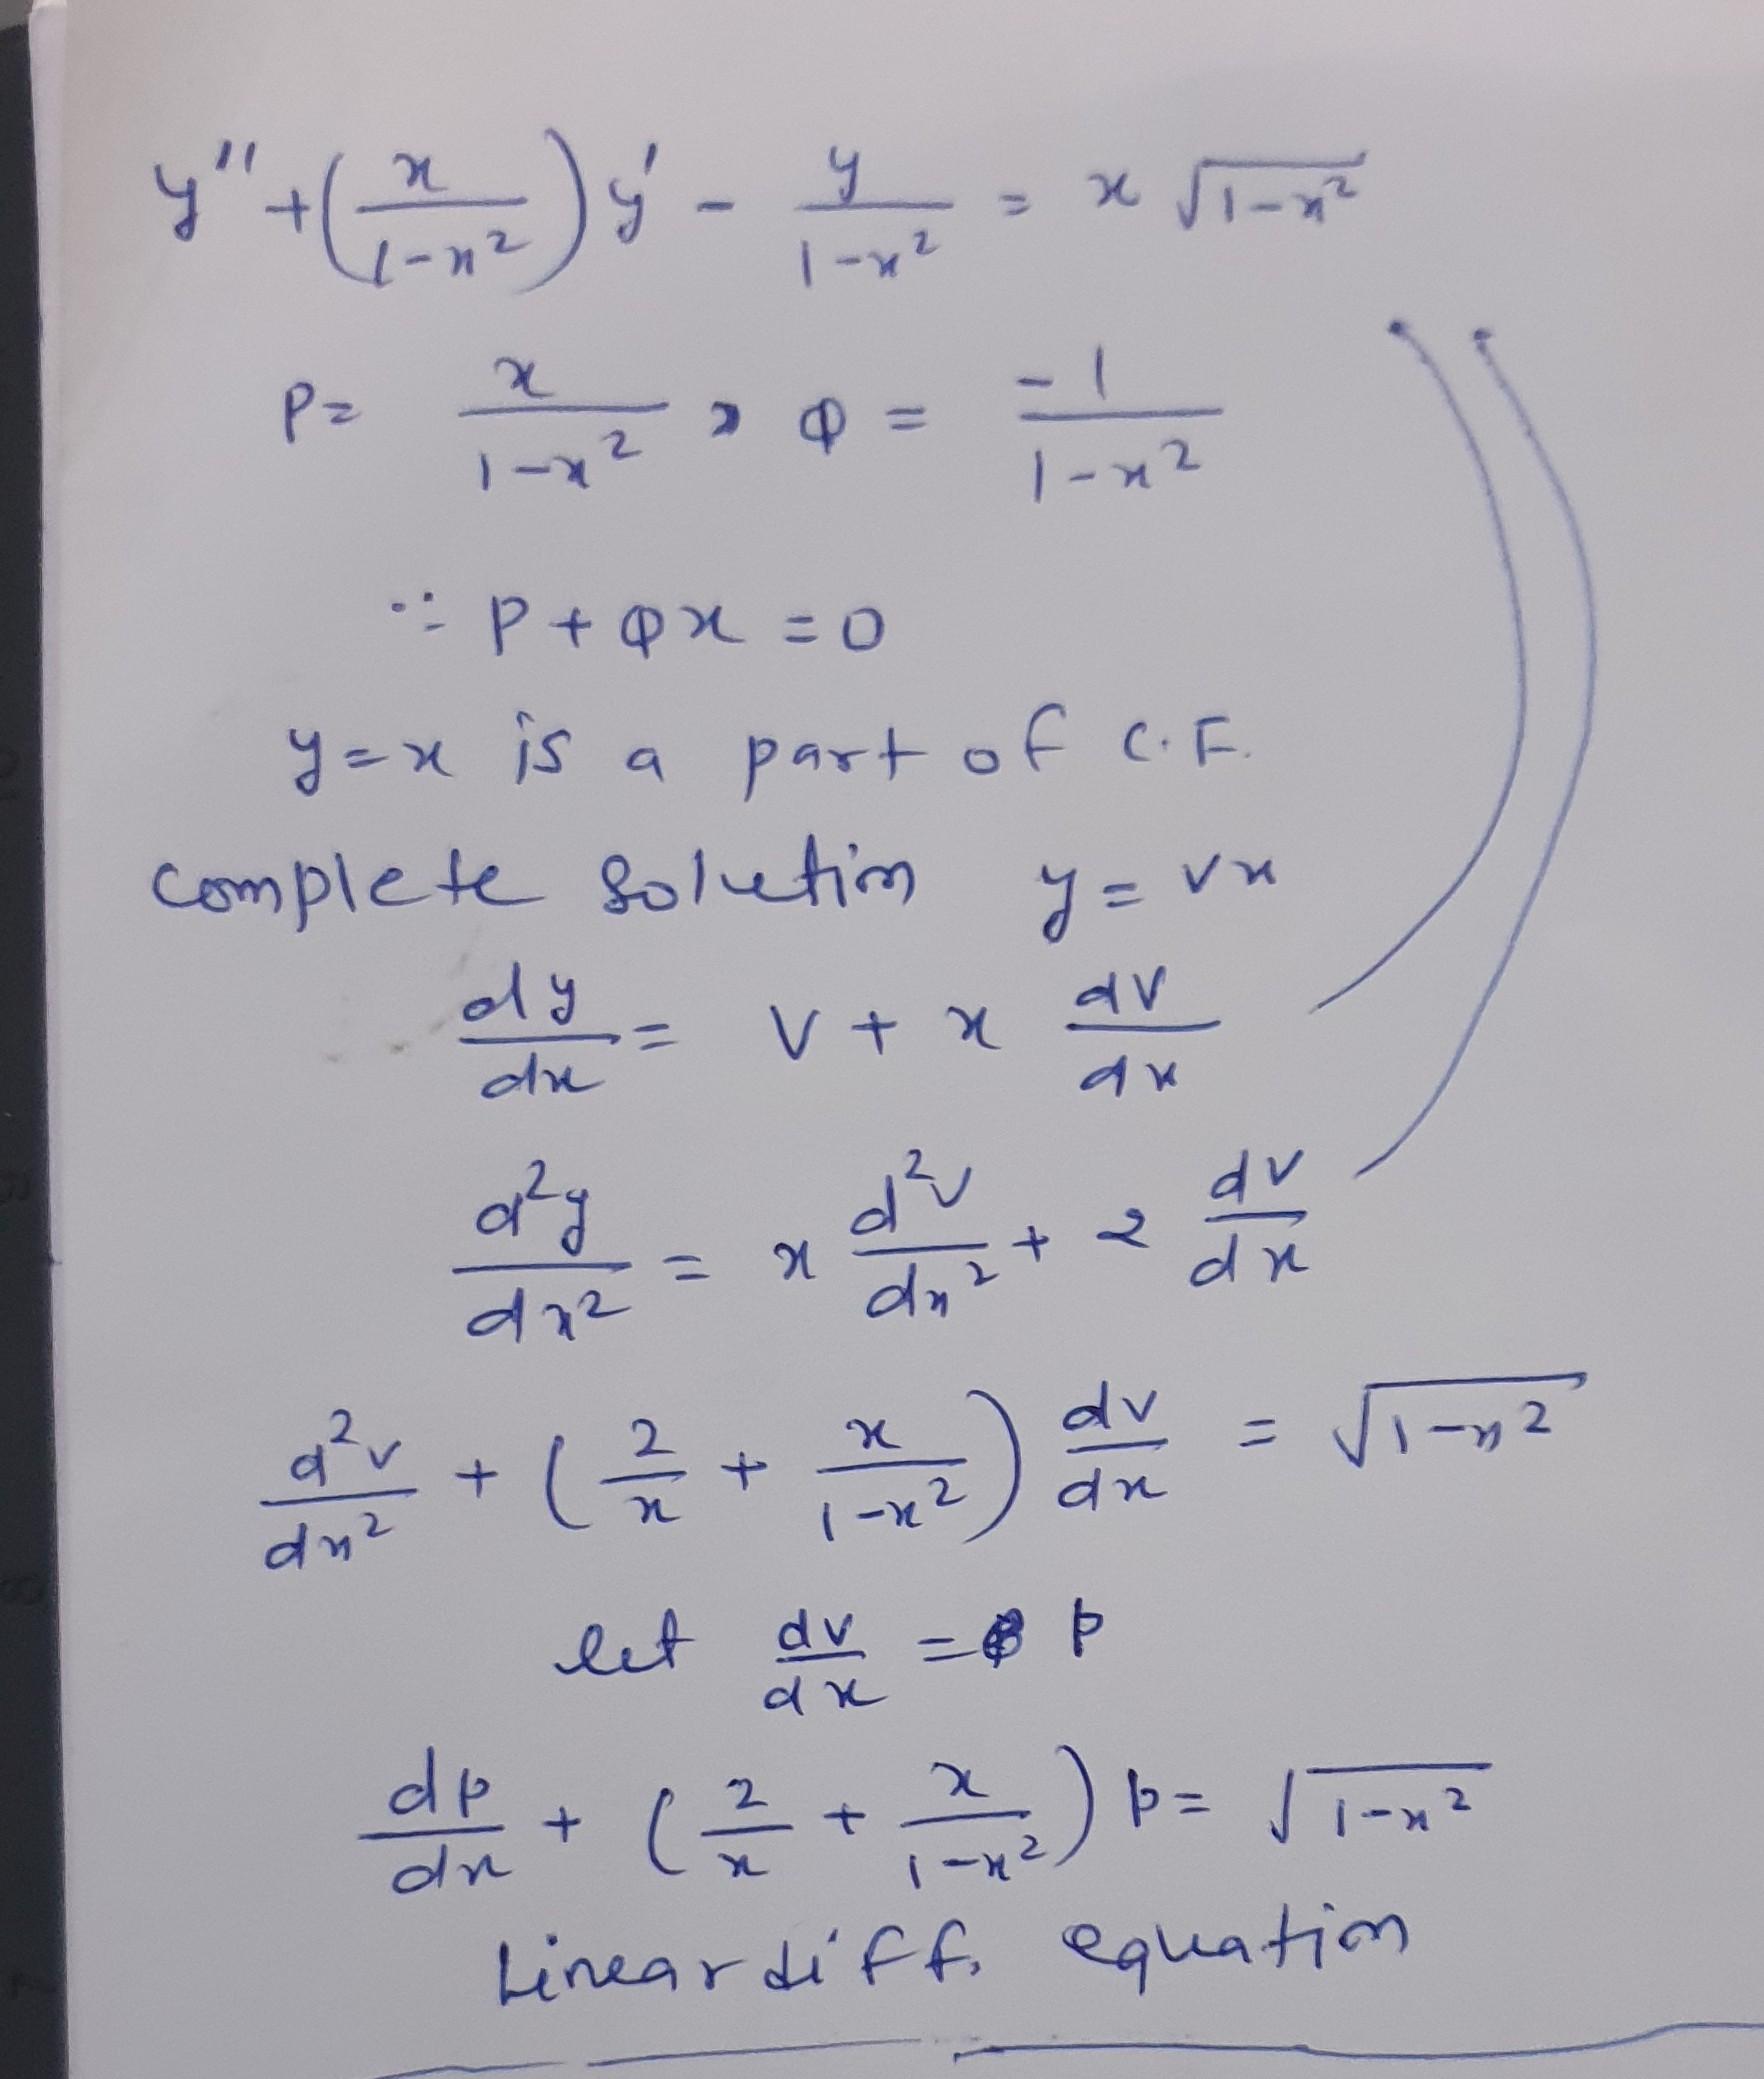 y'' + (x/(1-x²)) y' - y/(1-x²) = x √(1-x²)
P = x/(1-x²) , Q = -1/(1-x²)
∵ P + Qx = 0
y = x is a part of C.F.
complete solution y = vx
dy/dx = v + x dv/dx
d²y/dx² = x d²v/dx² + 2 dv/dx
d²v/dx² + (2/x + x/(1-x²)) dv/dx = √(1-x²)
let dv/dx = p
dp/dx + (2/x + x/(1-x²)) p = √(1-x²)
Linear diff. equation